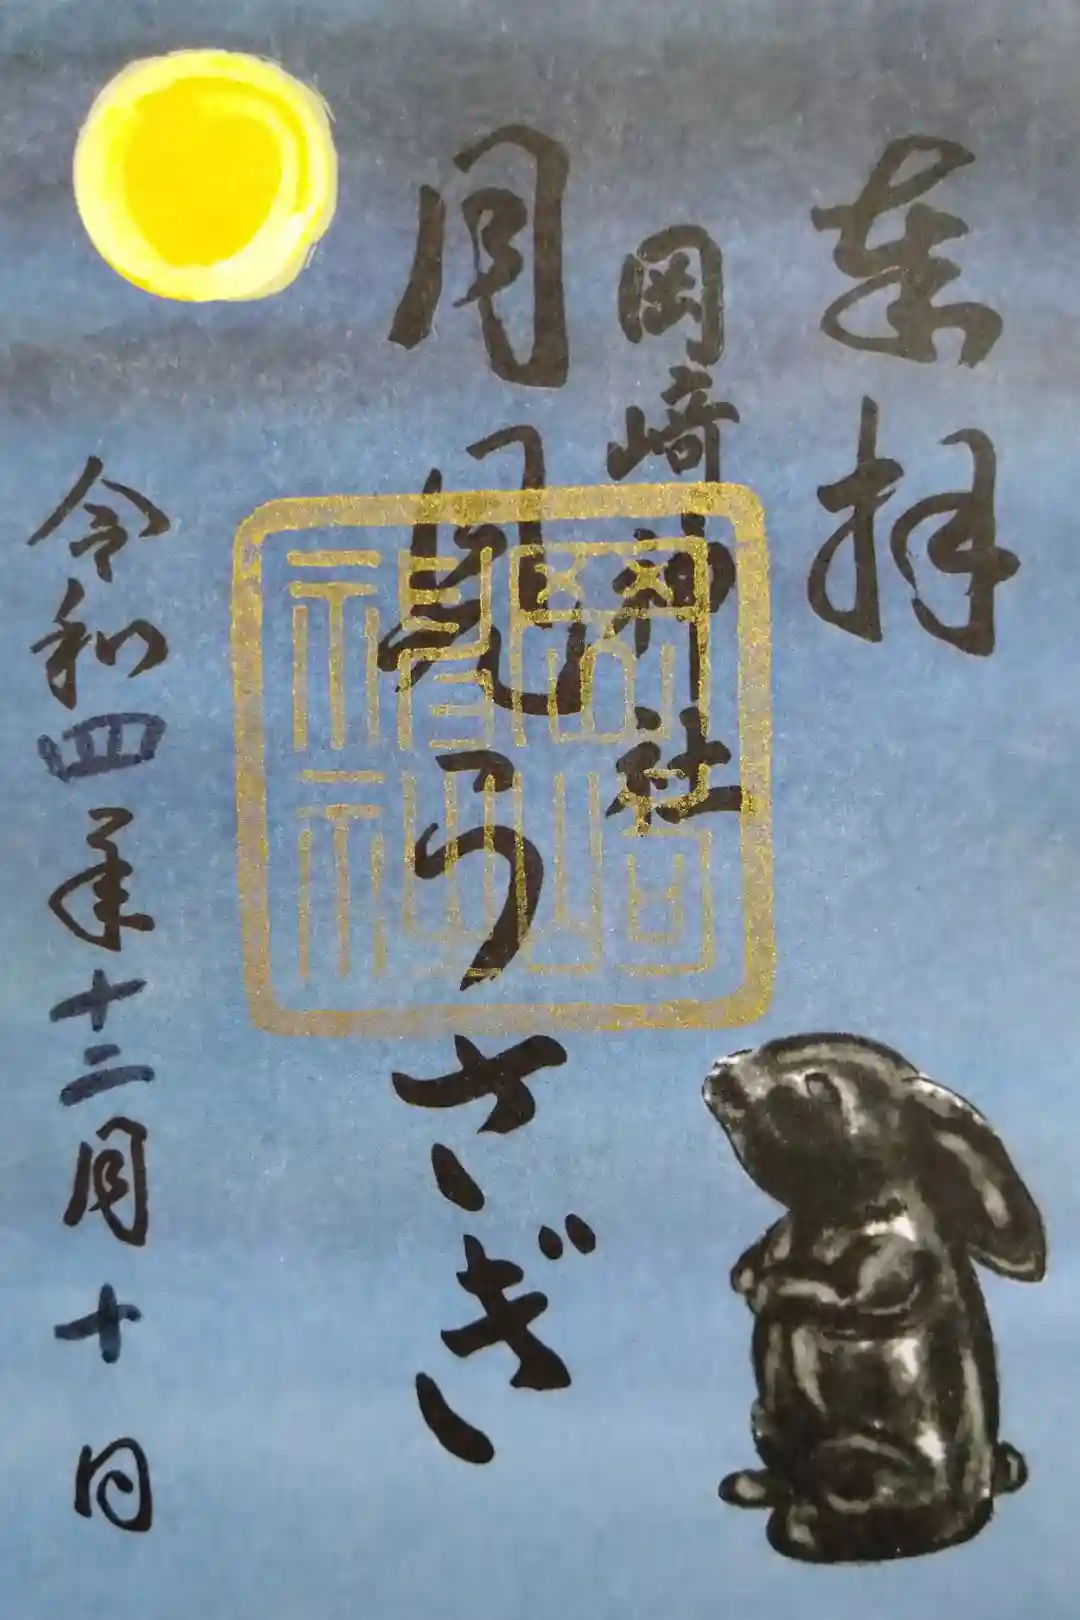 奉拝
岡崎神社
月見うさぎ
令和四年十二月十日
岡崎神社